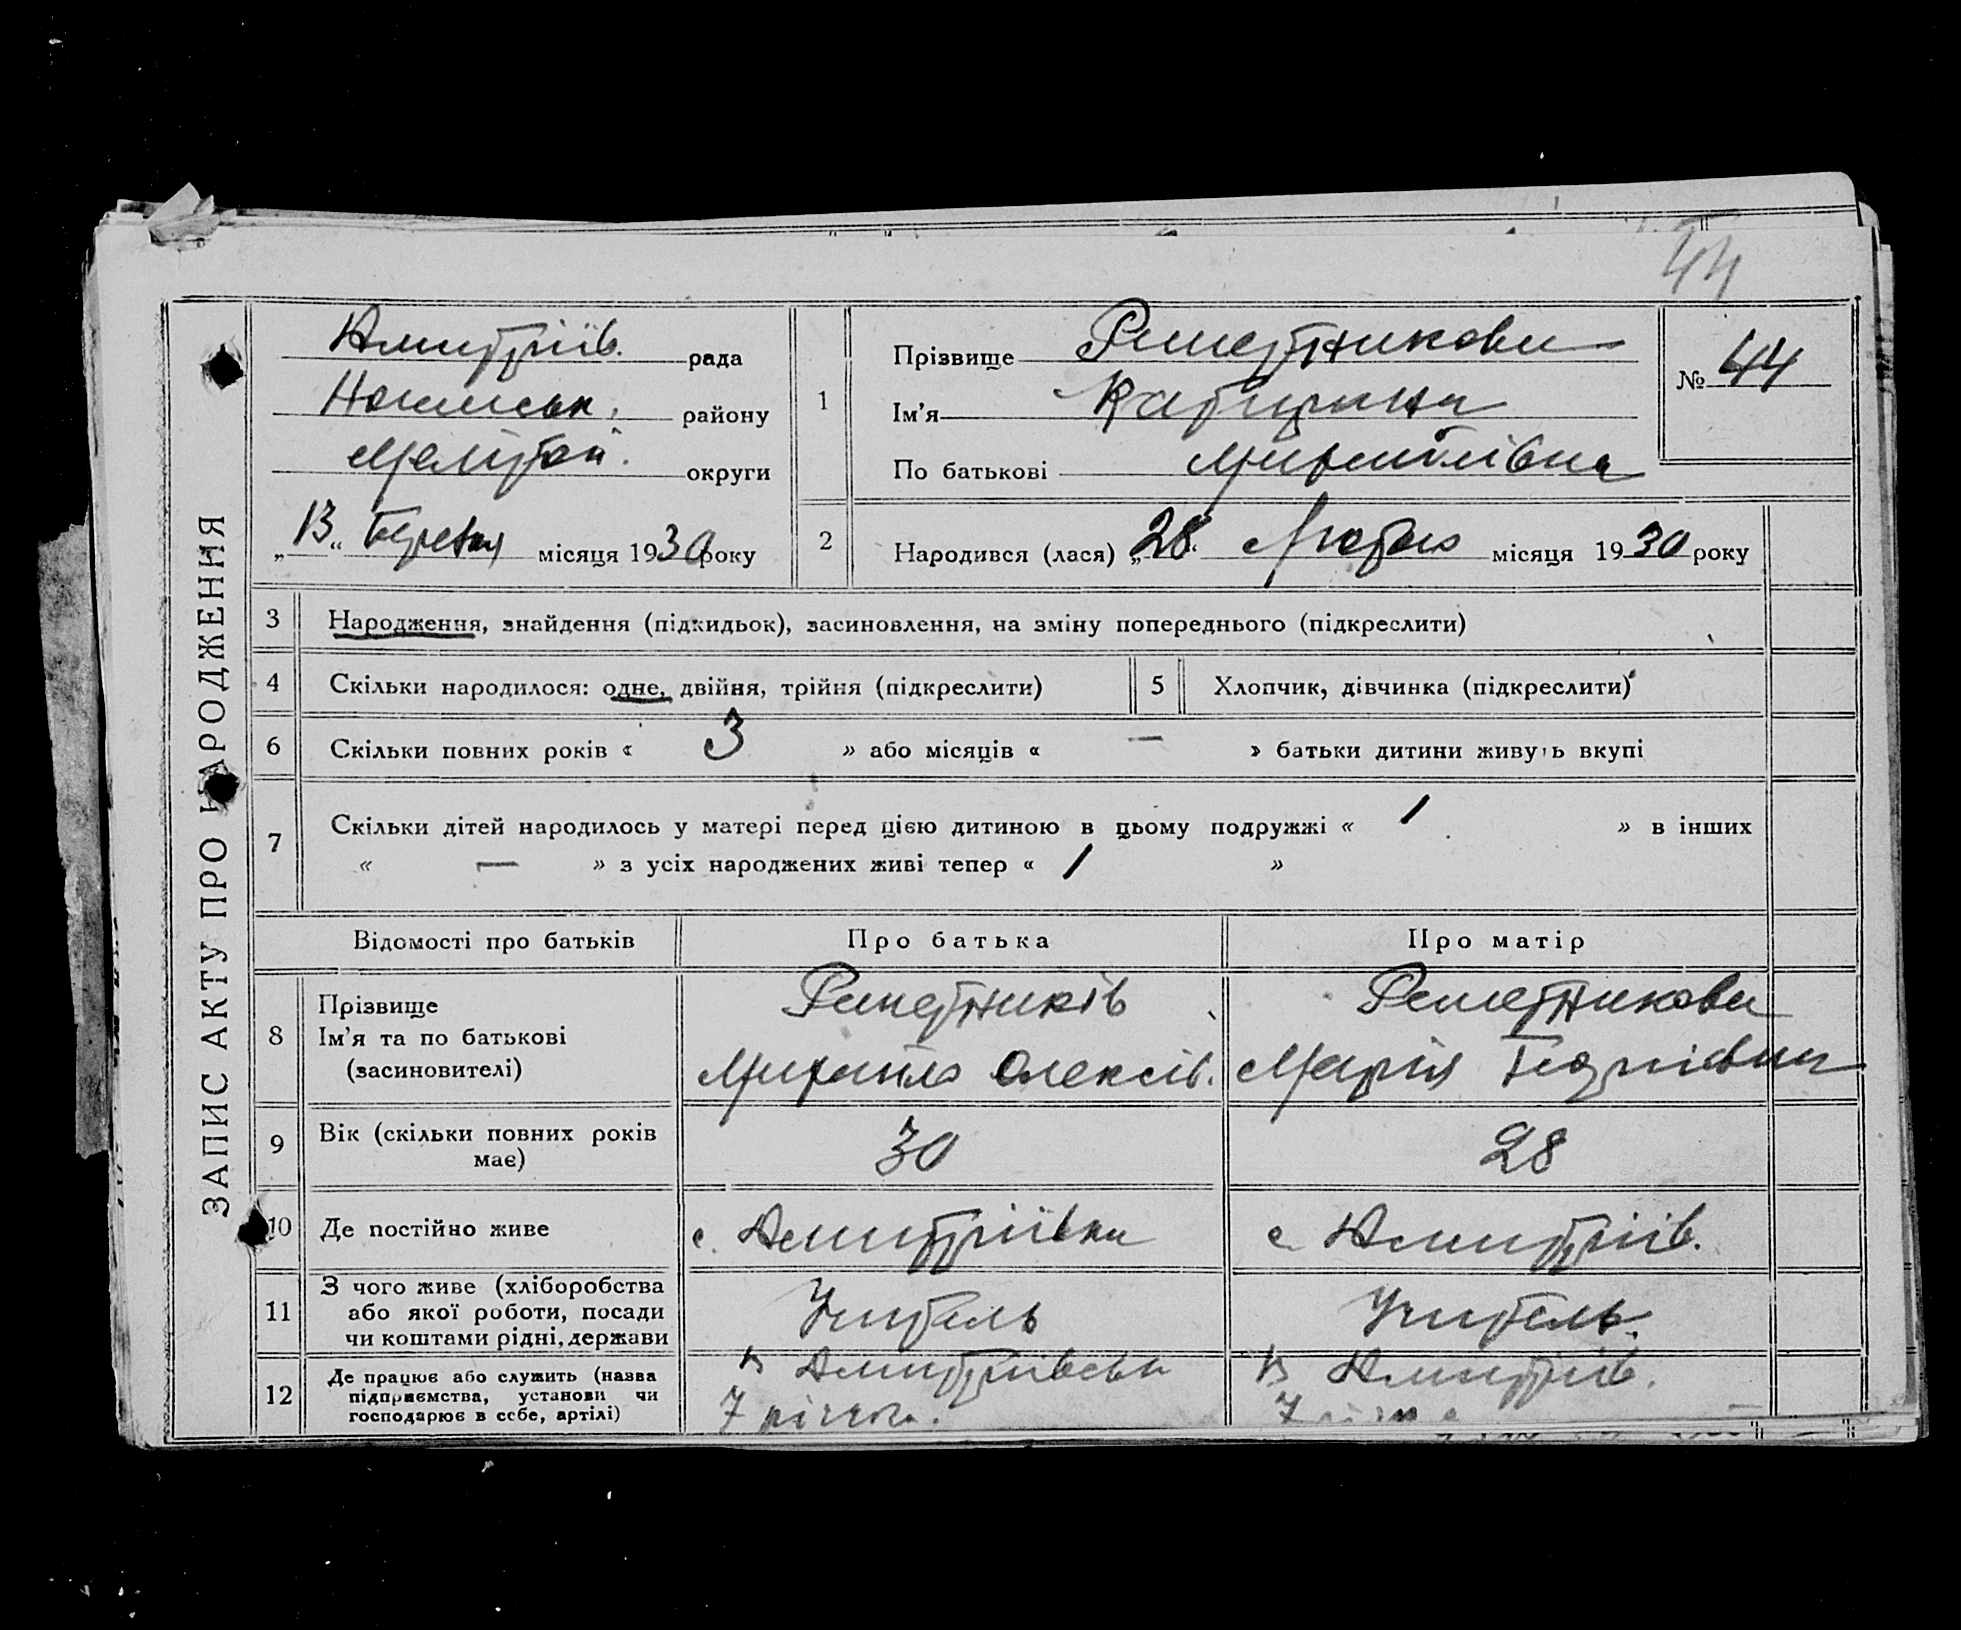 44
ЗАПИС АКТУ ПРО НАРОДЖЕННЯ
Дмитріїв. рада
району
Меліт. округи
„13“ Березня місяця 1930 року
1
Прізвище Решетникова
Ім’я Катирина
По батькові Михайлівна
№ 44
2
Народився (лася) „28“ Лютого місяця 1930 року
3 Народження, знайдення (підкидьок), засиновлення, на зміну попереднього (підкреслити)
4 Скільки народилося: одне, двійня, трійня (підкреслити)
5 Хлопчик, дівчинка (підкреслити)
6 Скільки повних років « 3 » або місяців « — » батьки дитини живуть вкупі
7 Скільки дітей народилось у матері перед цією дитиною в цьому подружжі « 1 » в інших
« — » з усіх народжених живі тепер « 1 »
Відомості про батьків Про батька Про матір
8 Прізвище
Ім’я та по батькові
(засиновителі)
Решетників
Михайло Олексів.
Решетникова
Марія
9 Вік (скільки повних років
має)
30
28
10 Де постійно живе
с. Дмитріївка
с. Дмитріїв.
11 З чого живе (хліборобства
або якої роботи, посади
чи коштами рідні, держави
Учитель
Учитель.
12 Де працює або служить (назва
підприємства, установи чи
господарює в себе, артілі)
в Дмитрівськ
7 річн.
в Дмитріїв.
7